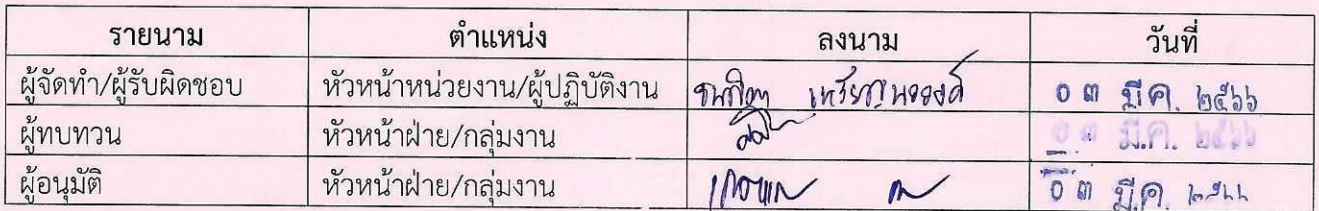 รายนาม ตำแหน่ง ลงนาม วันที่
ผู้จัดทำ/ผู้รับผิดชอบ หัวหน้าหน่วยงาน/ผู้ปฏิบัติงาน ๐ ๓ มี.ค. ๒๕๖๖
ผู้ทบทวน หัวหน้าฝ่าย/กลุ่มงาน ๐ ๓ มี.ค. ๒๕๖๖
ผู้อนุมัติ หัวหน้าฝ่าย/กลุ่มงาน ๐ ๓ มี.ค. ๒๕๖๖